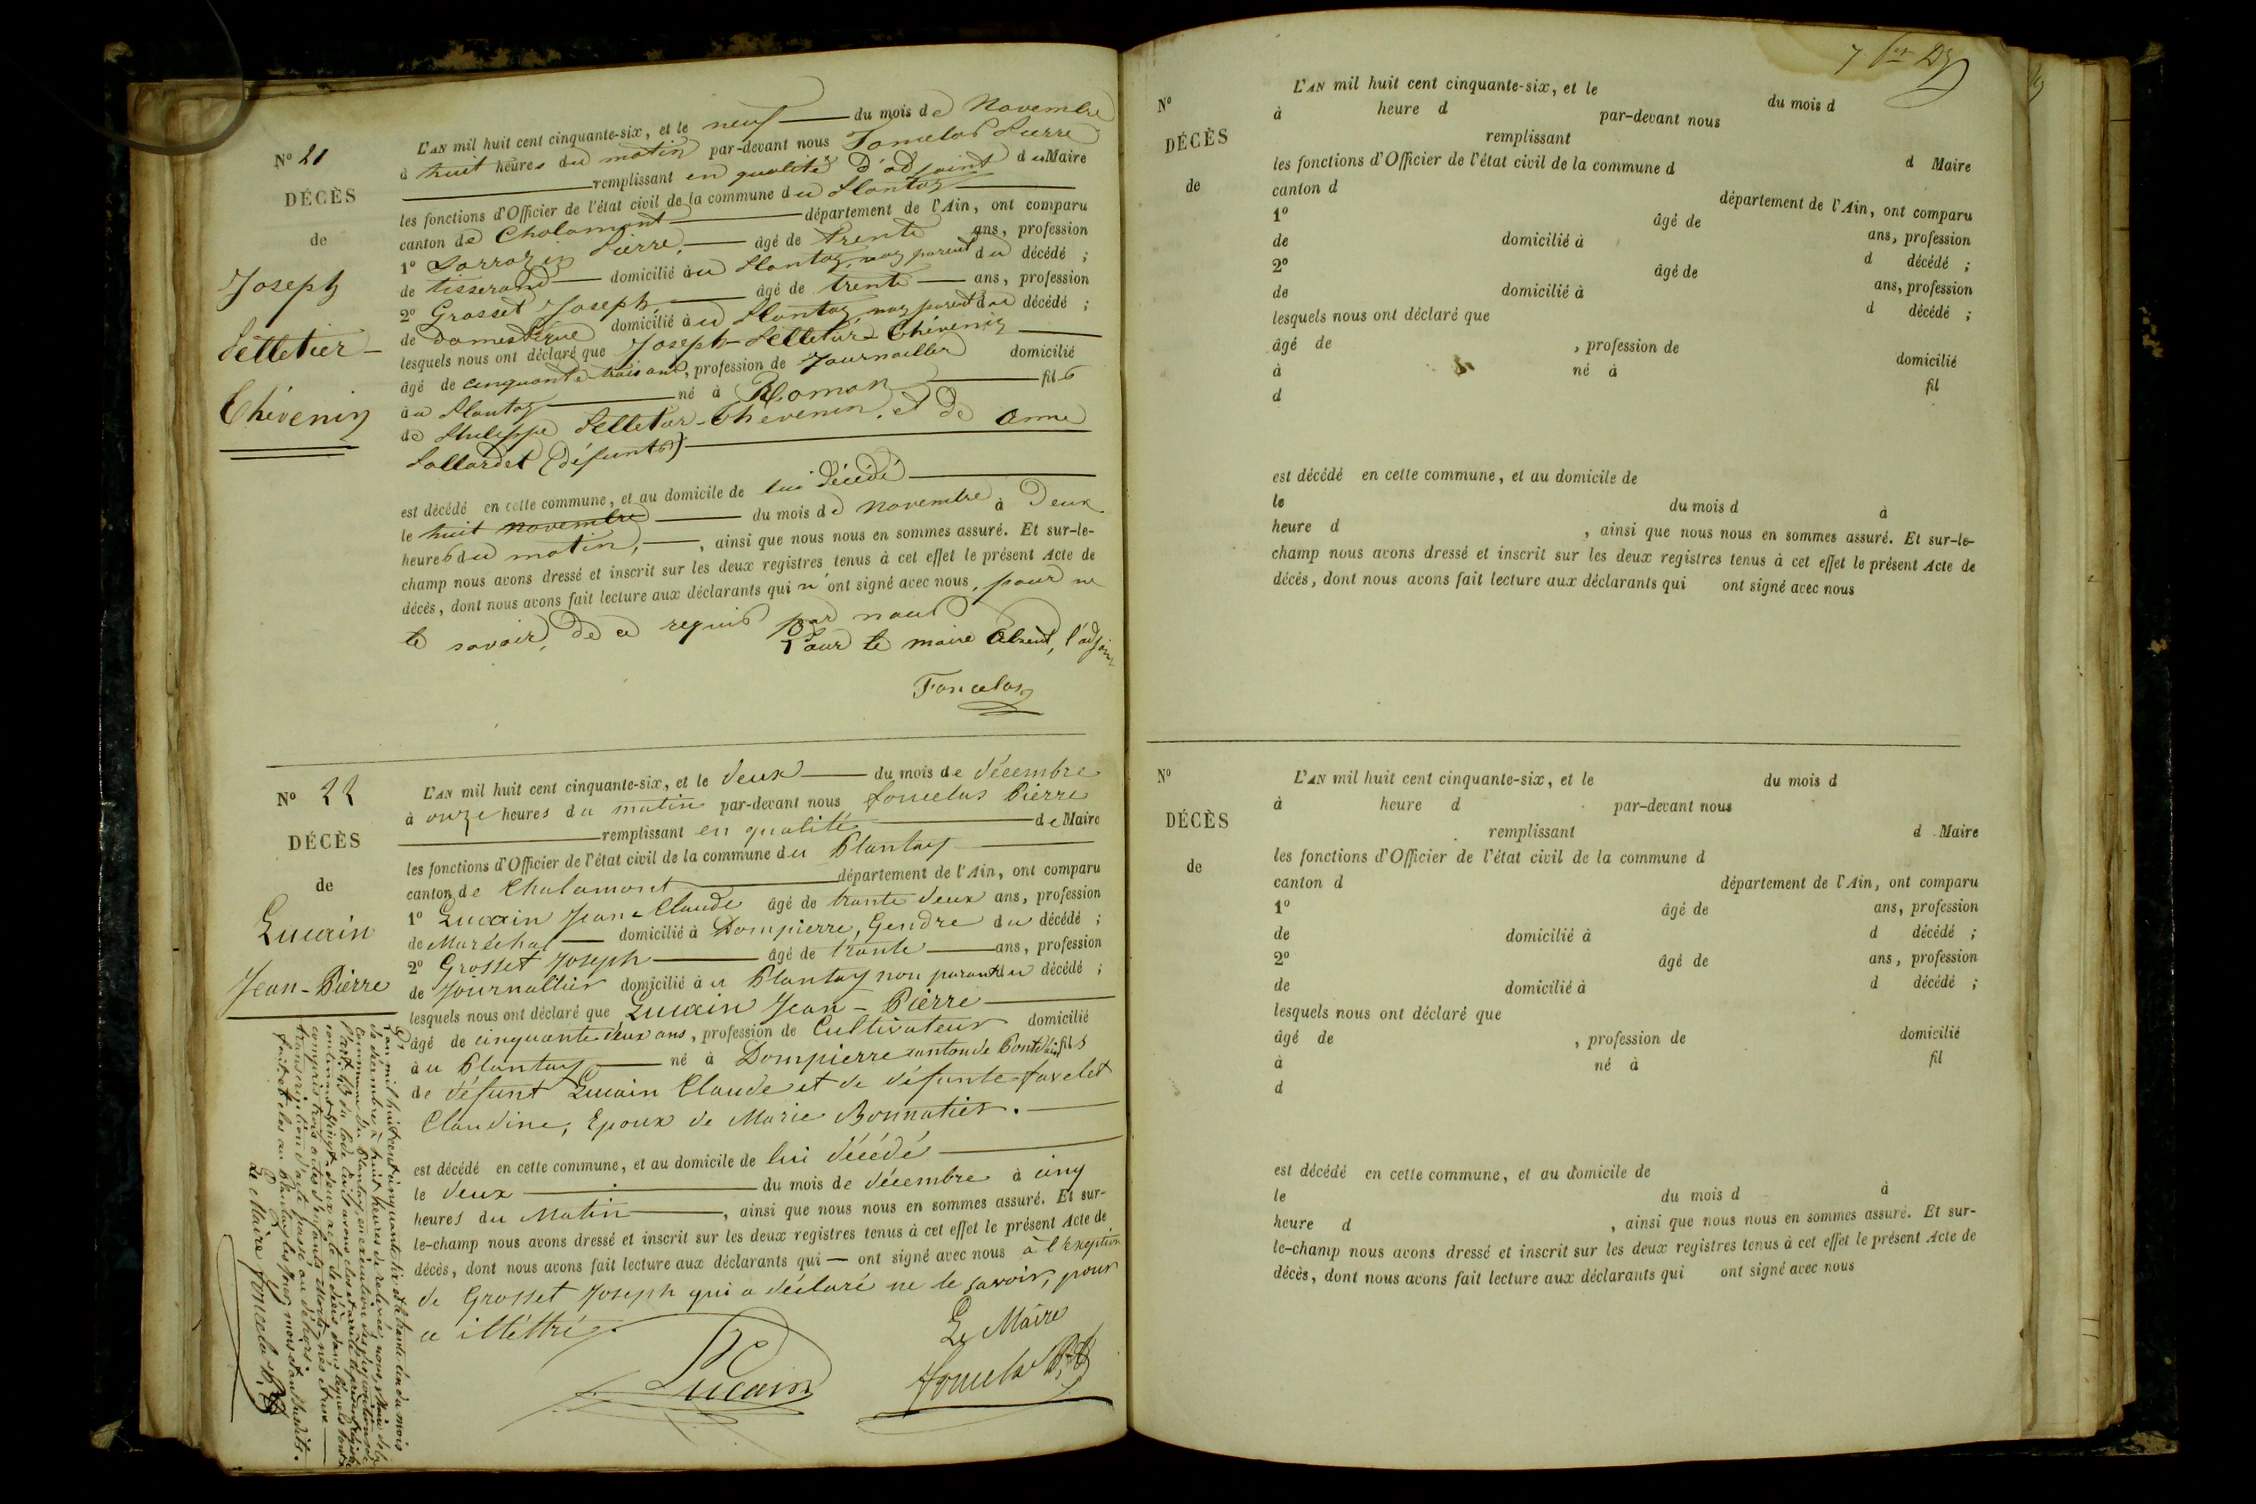 N° 21
DÉCÈS
de
Joseph
Pelletier-
Thévenin
L'AN mil huit cent cinquante-six, et le neuf du mois de Novembre
à huit heures du matin par-devant nous Foncelas Pierre
remplissant en qualité d'adjoint du Maire
les fonctions d'Officier de l'état civil de la commune du Plantay
canton de Chalamont département de l'Ain, ont comparu
1° Sarrazin Pierre, âgé de trente ans, profession
de tisserand domicilié au Plantay, non parent du décédé ;
2° Grosset Joseph, âgé de trente ans, profession
de domestique domicilié au Plantay, non parent du décédé ;
lesquels nous ont déclaré que Joseph Pelletier-Thévenin
âgé de cinquante trois ans, profession de Journallier domicilié
au Plantay né à fils
de Philippe Pelletier-Thévenin, et de Anne
(défunts)
est décédé en cette commune, et au domicile de lui décédé
le huit novembre du mois de novembre à Deux
heures du matin, , ainsi que nous nous en sommes assuré. Et sur-le-
champ nous avons dressé et inscrit sur les deux registres tenus à cet effet le présent Acte de
décès, dont nous avons fait lecture aux déclarants qui n'ont signé avec nous, pour ne
le savoir, de ce requis par nous
Pour le maire Absent, l'adjoint
Foncelas
N° 22
DÉCÈS
de
Lucain
Jean-Pierre
L'AN mil huit cent cinquante-six, et le deux du mois de décembre
à onze heures du matin par-devant nous foncelas Pierre
remplissant en qualité de Maire
les fonctions d'Officier de l'état civil de la commune du Plantay
canton de Chalamont département de l'Ain, ont comparu
1° Lucain Jean-Claude âgé de trante deux ans, profession
de Maréchal domicilié à Dompierre, Gendre du décédé ;
2° Grosset Joseph âgé de trante ans, profession
de Journallier domicilié au Plantay non parant du décédé ;
lesquels nous ont déclaré que Lucain Jean-Pierre
âgé de cinquante deux ans, profession de Cultivateur domicilié
au Plantay né à Dompierre canton de Pont d'ain fils
de défunt Lucain Claude et de défunte favelet
Claudine, Epoux de Marie Bonnatier.
est décédé en cette commune, et au domicile de lui décédé
le deux du mois de décembre à cinq
heures du Matin , ainsi que nous nous en sommes assuré. Et sur-
le-champ nous avons dressé et inscrit sur les deux registres tenus à cet effet le présent Acte de
décès, dont nous avons fait lecture aux déclarants qui — ont signé avec nous à l'Exeption
de Grosset Joseph qui a déclaré ne le savoir, pour
ce
Lucain
Le Maire
foncelas
L'an mil huit cent cinquante six et le trente un du mois
de décembre à huit heures de relevée, nous, Maire de la
commune du Plantay, en exécution des
du code civil avons clos et arrêté le présent registre
contenant vingt-deux acte de décès dans lequels sont
compris trois actes d'enfants Morts-nés et une
transcription d'acte passé au déhors.
fait et clos au Plantay les jour, mois et an susdits.
Le Maire foncelas
7
N°
DÉCÈS
de
L'AN mil huit cent cinquante-six, et le du mois d
à heure d par-devant nous
remplissant d Maire
les fonctions d'Officier de l'état civil de la commune d
canton d département de l'Ain, ont comparu
1° âgé de ans, profession
de domicilié à d décédé ;
2° âgé de ans, profession
de domicilié à d décédé ;
lesquels nous ont déclaré que
âgé de , profession de domicilié
à né à fil
d
est décédé en cette commune, et au domicile de
le du mois d à
heure d , ainsi que nous nous en sommes assuré. Et sur-le-
champ nous avons dressé et inscrit sur les deux registres tenus à cet effet le présent Acte de
décès, dont nous avons fait lecture aux déclarants qui ont signé avec nous
N°
DÉCÈS
de
L'AN mil huit cent cinquante-six, et le du mois d
à heure d par-devant nous
remplissant d Maire
les fonctions d'Officier de l'état civil de la commune d
canton d département de l'Ain, ont comparu
1° âgé de ans, profession
de domicilié à d décédé ;
2° âgé de ans, profession
de domicilié à d décédé ;
lesquels nous ont déclaré que
âgé de , profession de domicilié
à né à fil
d
est décédé en cette commune, et au domicile de
le du mois d à
heure d , ainsi que nous nous en sommes assuré. Et sur-
le-champ nous avons dressé et inscrit sur les deux registres tenus à cet effet le présent Acte de
décès, dont nous avons fait lecture aux déclarants qui ont signé avec nous